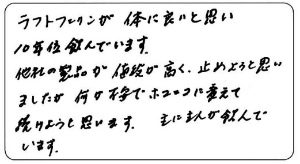 ラフトフィリンが 体に良いと思い
10年位飲んでいます.
他社の製品が 値段が高く、止めようと思い
ましたが 何か不安でホコニコに変えて
続けようと思います. 主に主人が飲んで
います.